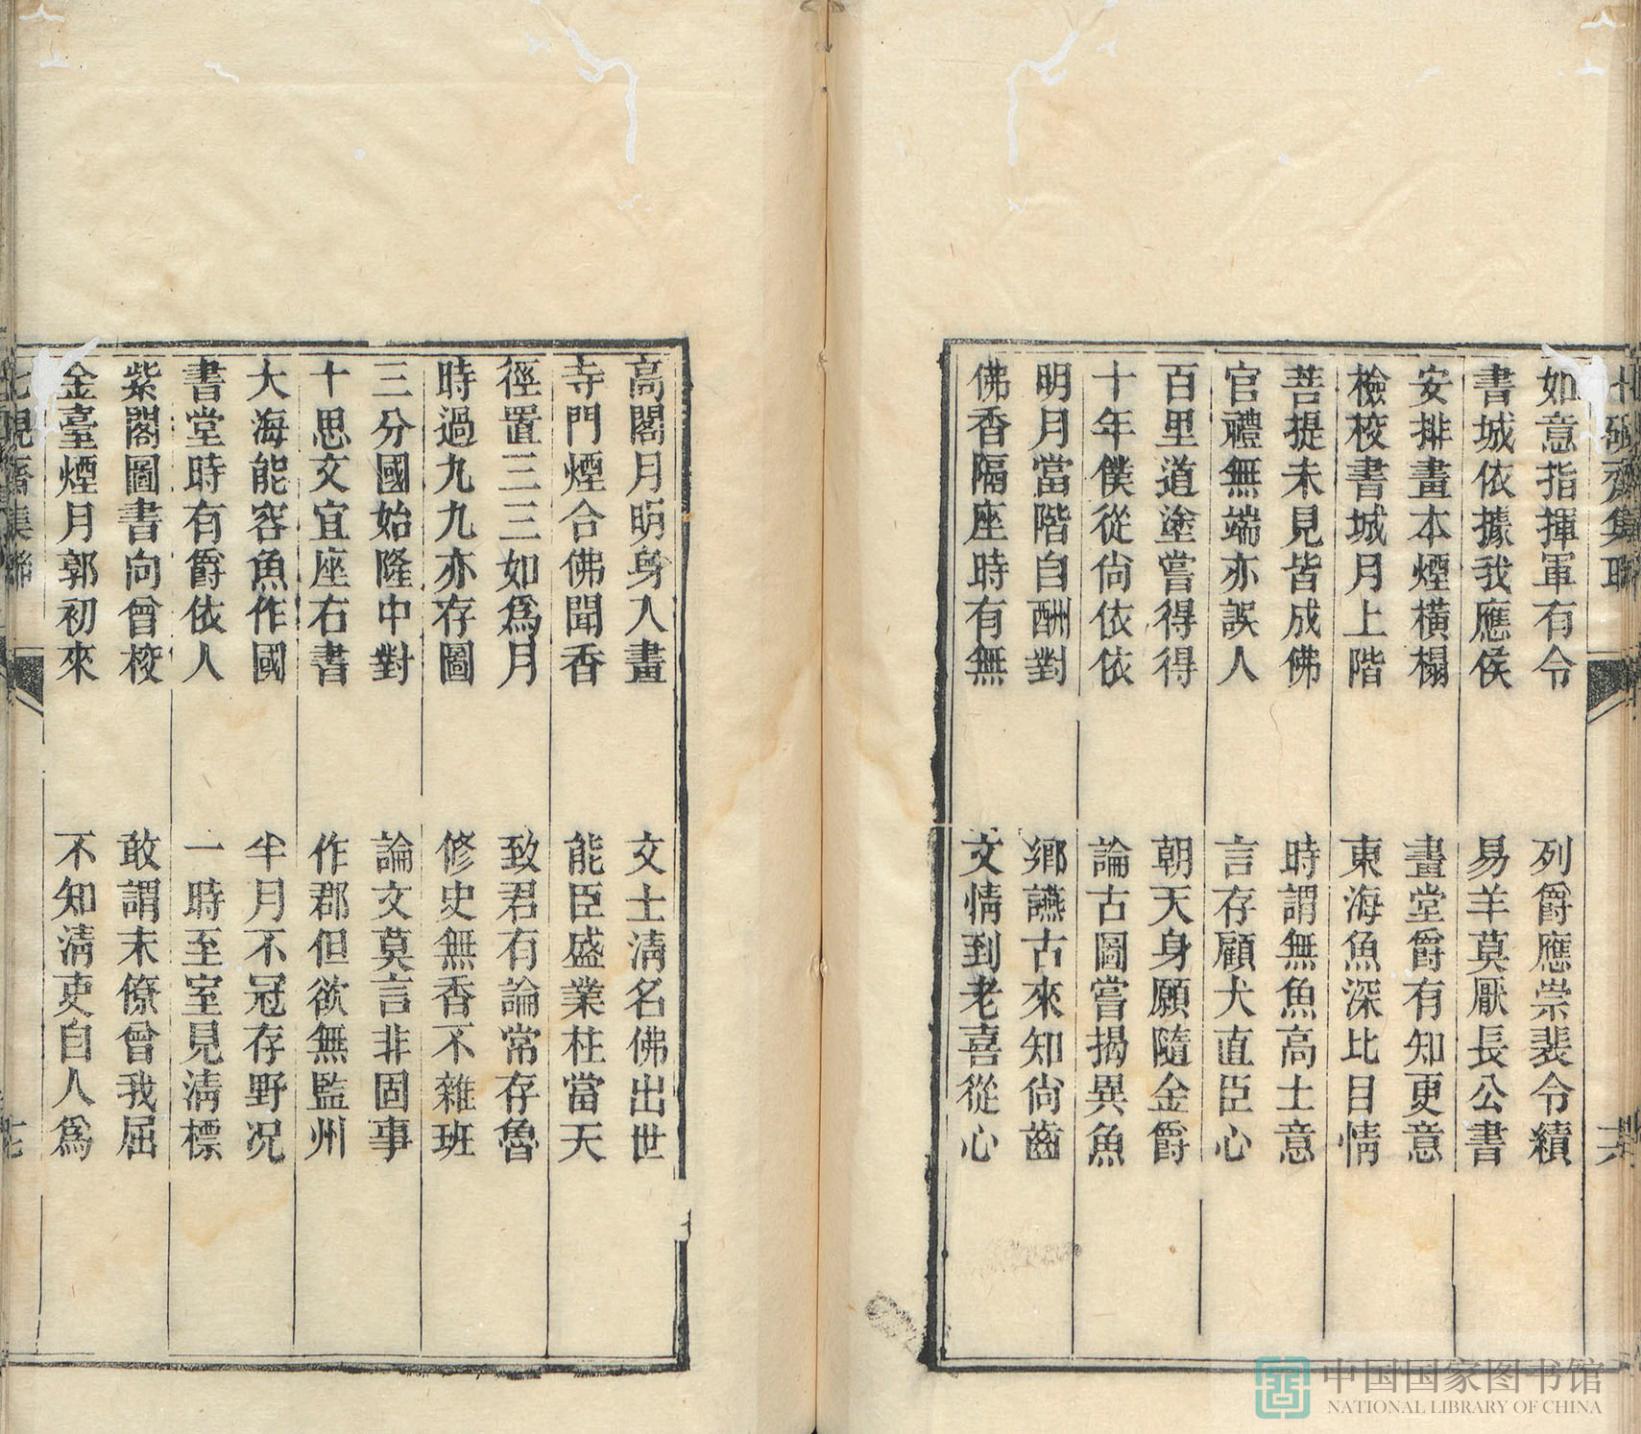 如意指揮軍有令　列爵應崇裴令績
書城依據我應侯　易羊莫厭長公書
安排畫本煙橫榻　畫堂爵有知更意
檢校書城月上階　東海魚深比目情
菩提未見皆成佛　時謂無魚高士意
官禮無端亦誤人　言存顧犬直臣心
百里道塗嘗得得　朝天身願隨金爵
十年僕從尙依依　論古圖嘗揭異魚
明月當階自酬對　鄉讌古來知尙齒
佛香隔座時有無　文情到老喜從心
高閣月明身入畫　文士淸名佛出世
寺門煙合佛聞香　能臣盛業柱當天
徑置三三如爲月　致君有論常存魯
時過九九亦存圖　修史無香不雜班
三分國始隆中對　論文莫言非固事
十思文宜座右書　作郡但欲無監州
大海能容魚作國　半月不冠存野况
書堂時有爵依人　一時至室見淸標
紫閣圖書向曾校　敢謂末僚曾我屈
金臺煙月郭初來　不知淸吏自人爲
中国国家图书馆
NATIONAL LIBRARY OF CHINA